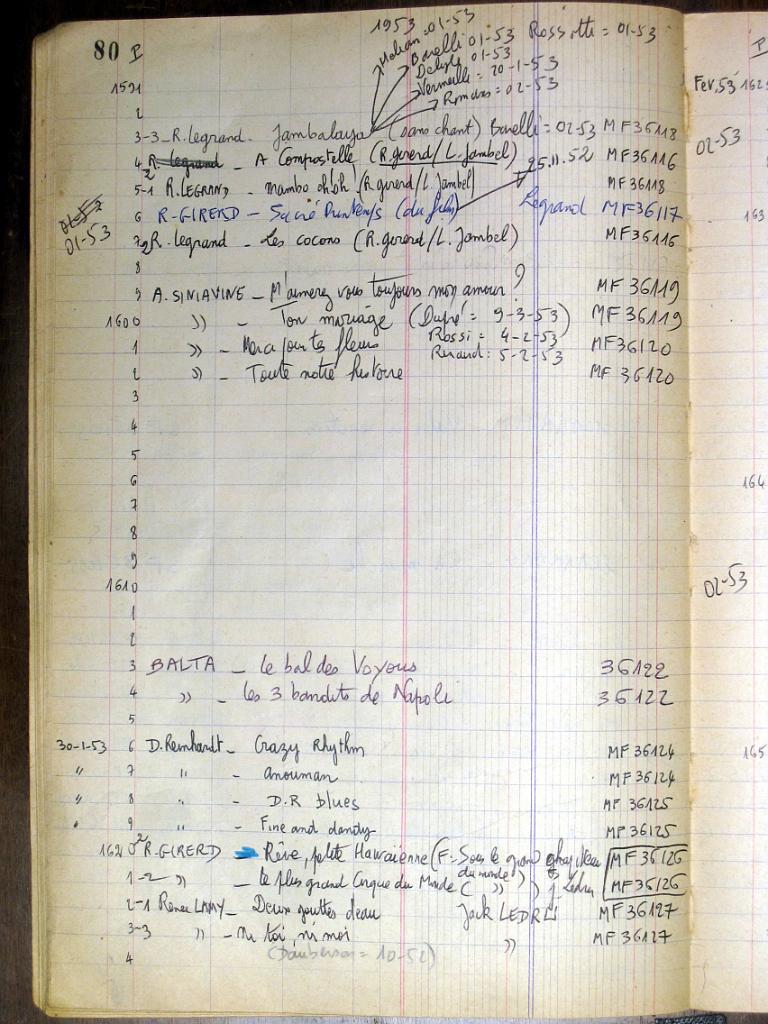 80 P
1953
01-53
Barelli 01-53 Rossotti = 01-53
Delyle 01-53
Vermeille = 20-1-53
Romans = 02-53
1591
2
3-3 R. Legrand. Jambalaya (sans chant) Barelli = 02-53 MF36118
4 2 R. Legrand - A Compostelle (R. girerd / L. Jambel) MF36116
25.11.52
5-1 R. LEGRAND - mambo (R. girerd / L. Jambel) MF 36118
6 R. GIRERD - Sacré Printemps (du film) Legrand MF36117
01-53
01-53
7 2 R. Legrand - Les cocons (R. girerd / L. Jambel) MF36116
8
9 A. SINIAVINE - M'aimerez vous toujours mon amour ? MF 36119
1600 " - Ton mariage (Dupré = 9-3-53) MF 36119
1 " - Merci pour tes fleurs Rossi = 4-2-53 MF36120
Renaud : 5-2-53
2 " - Toute notre histoire MF 36120
3
4
5
6
7
8
9
1610
1
2
3 BALTA - Le bal des Voyous 36122
4 " - Les 3 bandits de Napoli 36122
5
30-1-53 6 D. Reinhardt - Crazy Rhythm MF 36124
" 7 " - anouman MF 36124
" 8 " - D.R blues MF 36125
" 9 " - Fine and dandy MF 36125
1620 2 R. GIRERD - Rêve, petite Hawaïenne (F = Sous le grand MF 36126
1-2 " - Le plus grand Cirque du Monde ( " ) J. Ledru MF 36126
du monde
2-1 Renée LAMY - Deux gouttes d'eau Jack LEDRU MF 36127
3-3 " - Ni toi, ni moi " MF 36127
(Dauberson = 10-52)
4
P
Fev, 53 162
02-53
163
164
02-53
165